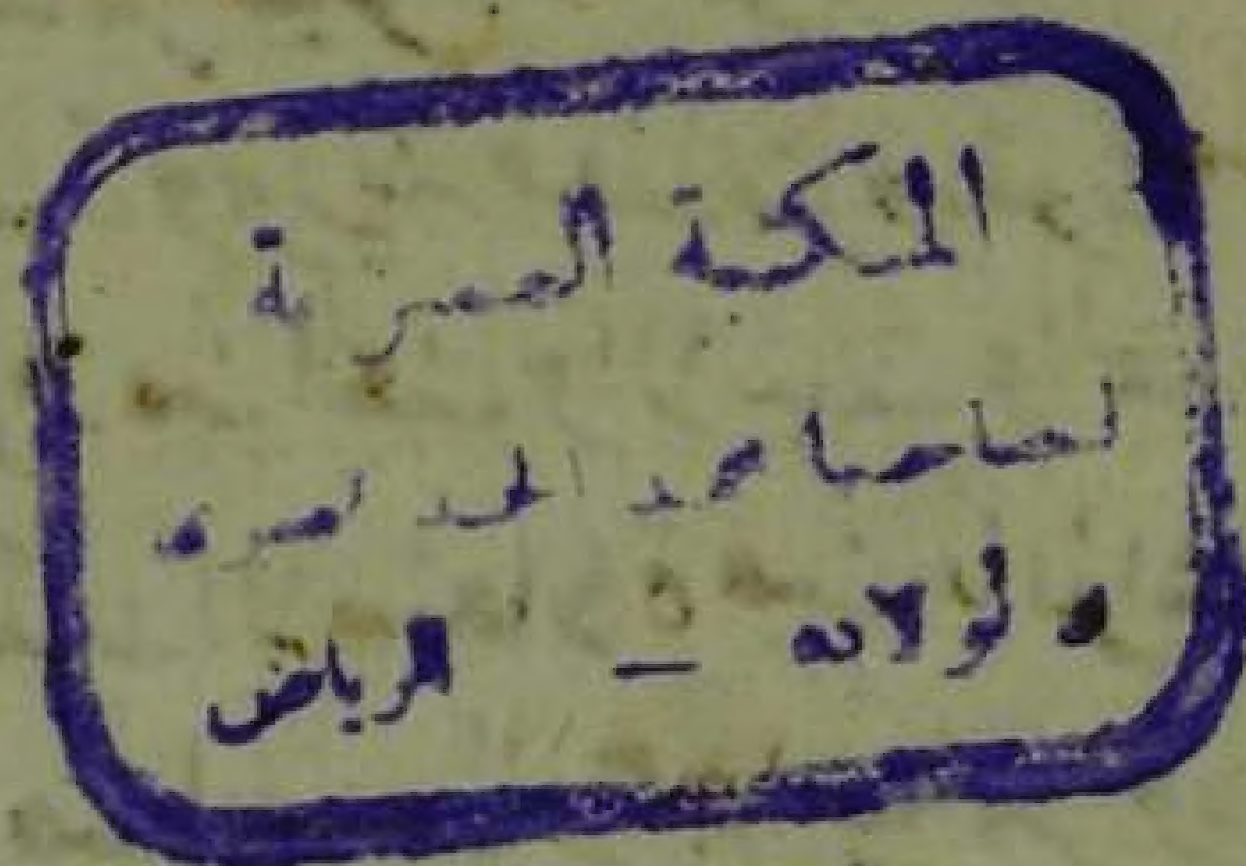 المكتبة العصرية
لصاحبها محمد الحمد
ولولاده — الرياض